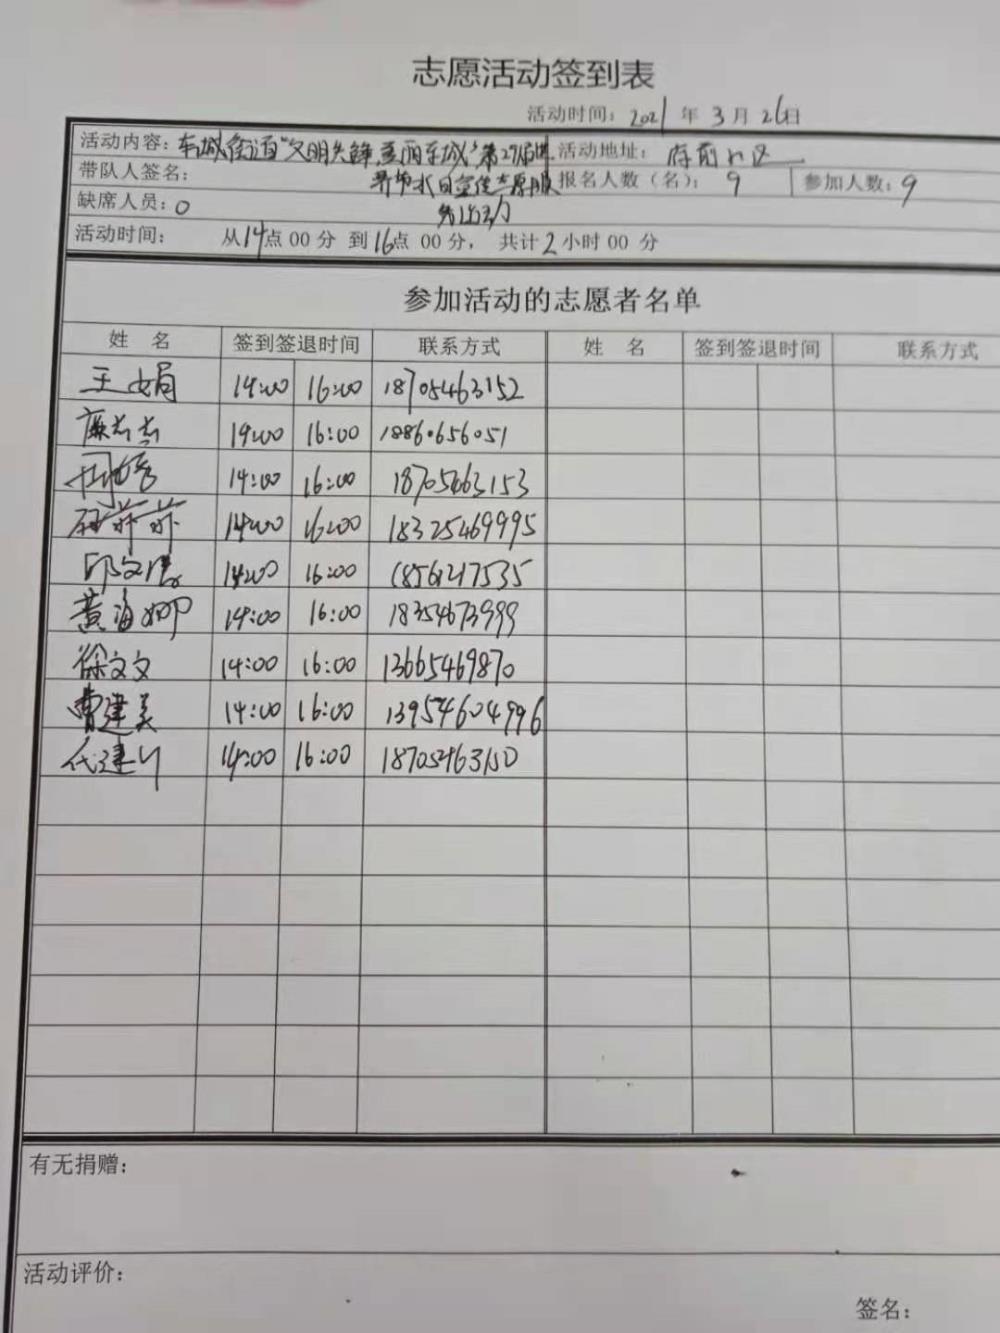 志愿活动签到表
活动时间: 2021 年 3 月 26日
活动内容: 东城街道"文明先锋 美丽东城"第29届世 活动地址: 府前社区
带队人签名: 界节水日宣传志愿服 报名人数（名）: 9 参加人数: 9
缺席人员: 0 务活动
活动时间: 从14点 00 分 到16点 00 分， 共计2小时 00 分
参加活动的志愿者名单
姓 名 签到签退时间 联系方式 姓 名 签到签退时间 联系方式
王娟 14:00 16:00 18705463152
廉芸芸 14:00 16:00 18860656051
14:00 16:00 18705463153
14:00 16:00 18325469995
邱文 14:00 16:00 18561217535
黄海娜 14:00 16:00 18354673999
徐文文 14:00 16:00 13665469870
曹建美 14:00 16:00 13954604996
代建 14:00 16:00 18705463150
有无捐赠:
活动评价:
签名: